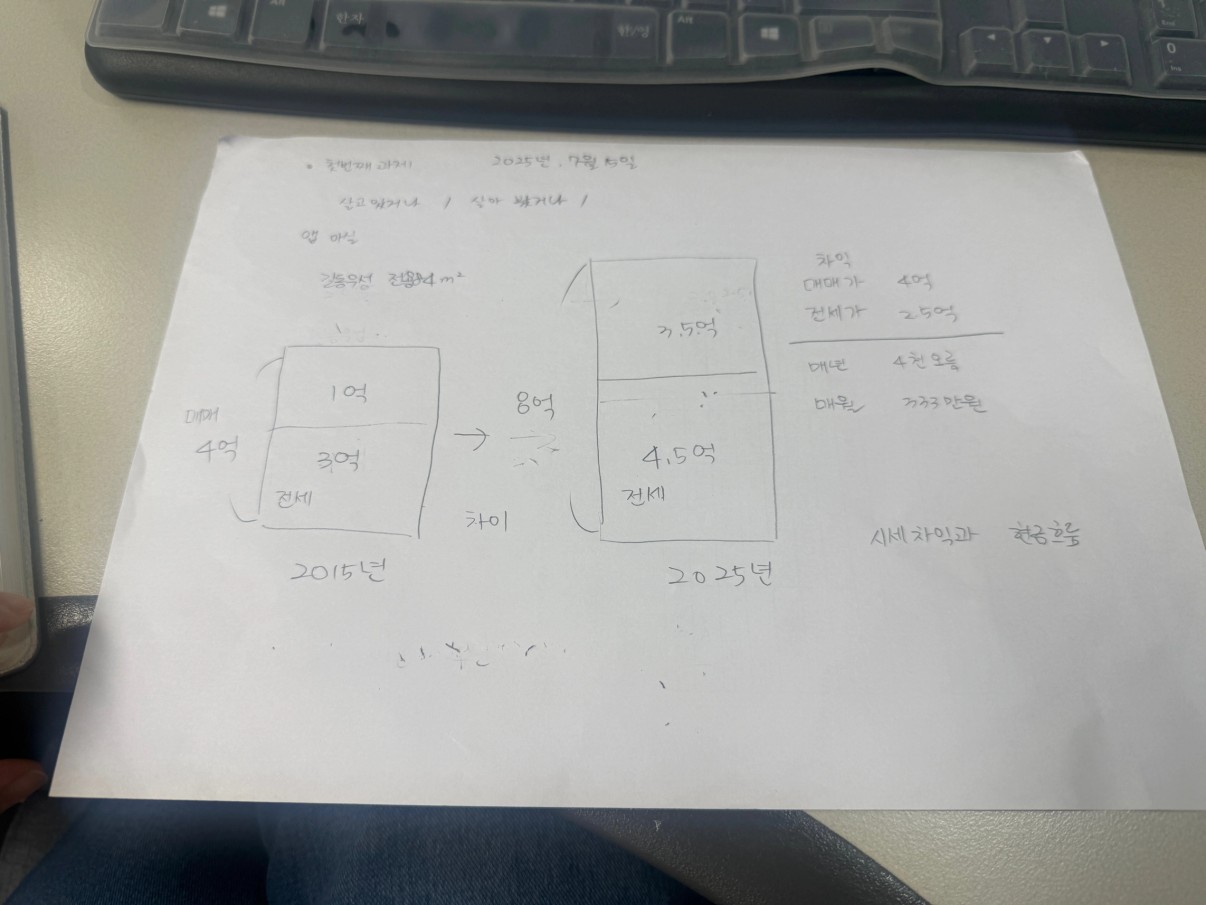 한자
한/영
Alt
0
Ins
• 첫번째 과제 2025년. 7월 15일
살고있거나 / 살아 봤거나 /
앱 아실
길동우성 전용 84m²
매매
4억
1억
3억
전세
2015년
→
차이
8억
3.5억
4.5억
전세
2025년
차익
매매가 4억
전세가 2.5억
매년 4천오름
매월 333만원
시세차익과 현금흐름